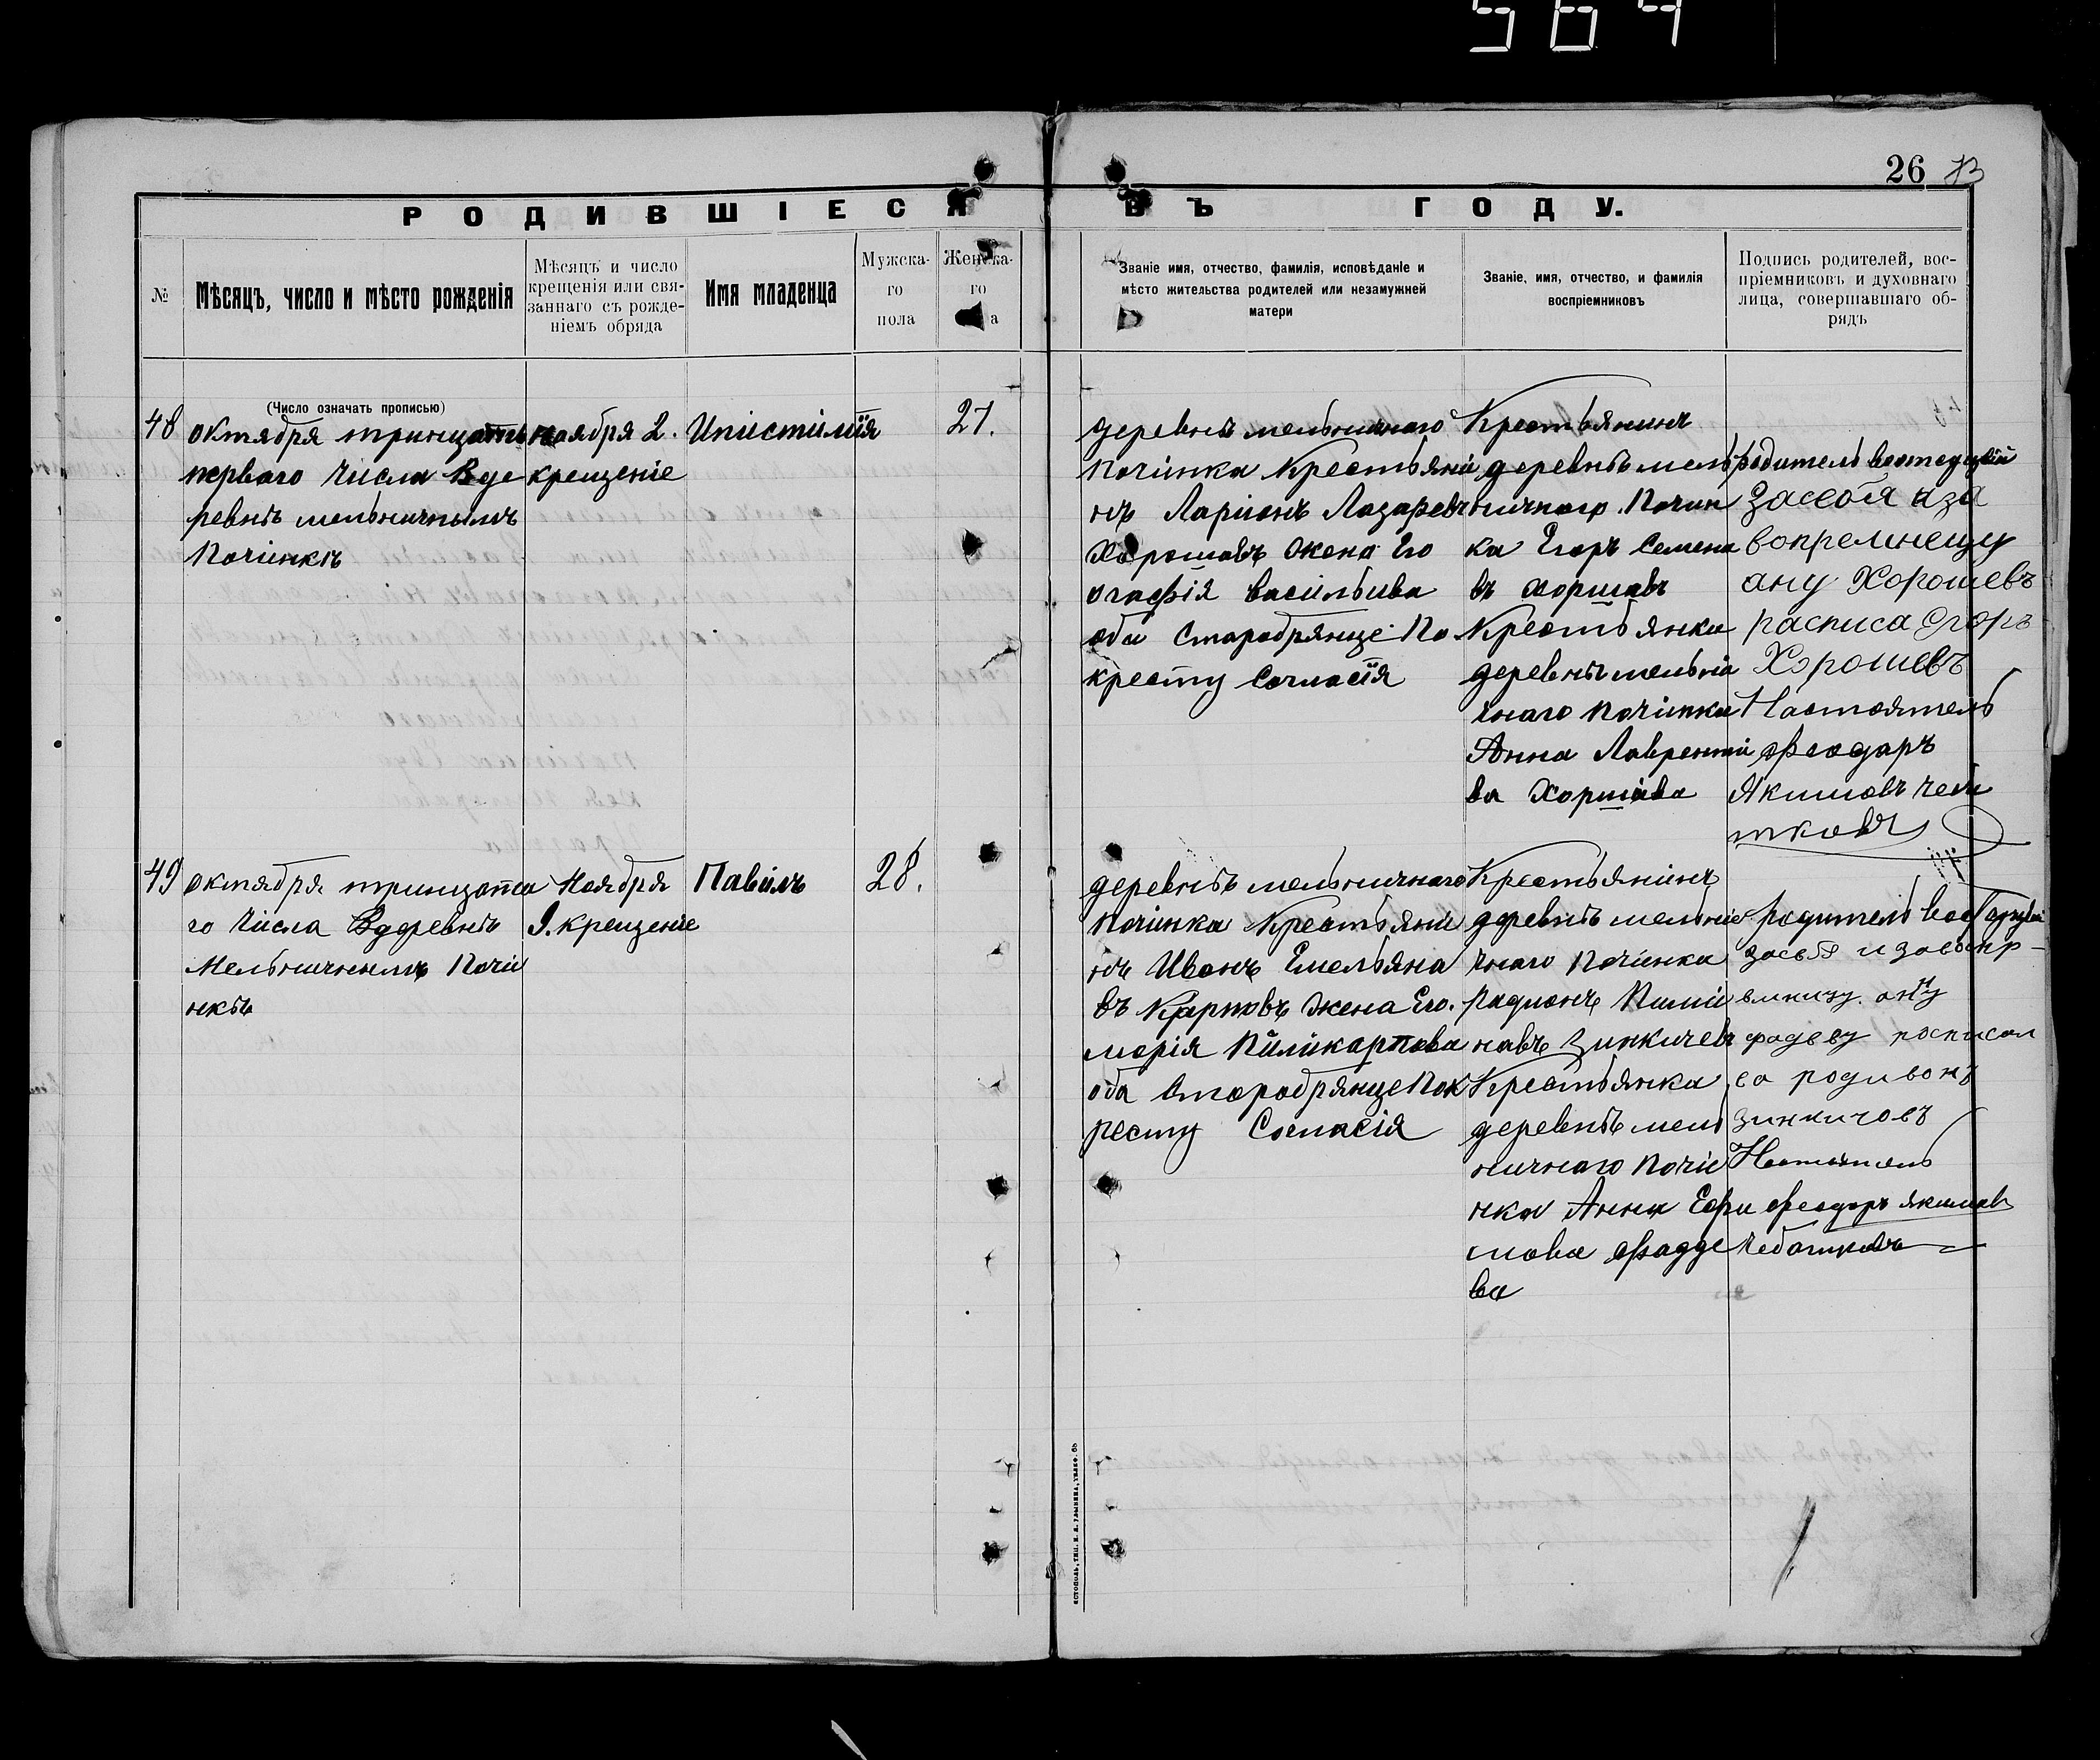 564
26 73
РОДИВШІЕСЯ ВЪ ГОДУ.
№
Мѣсяцъ, число и мѣсто рожденія
Мѣсяцъ и число
крещенія или свя-
заннаго съ рожде-
ніемъ обряда
Имя младенца
Мужска-
го
пола
Женска-
го
а
Званіе имя, отчество, фамилія, исповѣданіе и
мѣсто жительства родителей или незамужней
матери
Званіе, имя, отчество, и фамилія
воспріемниковъ
Подпись родителей, вос-
пріемниковъ и духовнаго
лица, совершавшаго об-
рядъ
(Число означать прописью)
48
октября тринцать
перваго числа Вде
ревнѣ мельничнымъ
Починкѣ
ноября 2.
крещеніе
Ипистимія
27.
деревнѣ мельничнаго
Починка Крестьяни
нъ Ларионъ Лазаревъ
Хорошавъ жена Его
огафія васильива
оба Старобрянце По
кресту Согласія
Крестьянинъ
деревнѣ мель
ничнаго Почин
ка Егоръ Семена
въ хоршавъ
Крестьянка
деревнѣ мельни
чнаго починка
Анна Лаврентьи
ва Хоршава
родитель
засебя иза
вопремнещу
ану Хорошевъ
расписа Егоръ
Хорошевъ
Настоятель
Феодаръ
Якимовъ чебо
тковъ
49
октября тринцата
го числа Вдеревнѣ
Мельничнымъ Почи
нкѣ
Ноября
1. крещеніе
Павилъ
28.
деревнѣ мельничнаго
Починка Крестьяни
нъ Иванъ Емельяна
въ Куртовъ жена Его.
марія Пиликарпова
оба Старобрянце Пок
ресту Согласія
Крестьянинъ
деревнѣ мельни
чнаго Починка
Радионъ Пими
навъ Зинкичевъ
Крестьянка
деревнѣ мель
ничнаго Почи
нка Анна Ефи
мова Фадде
ва
родитель
засебя и завоспр-
вмницу анну
фадеву росписал
са родивонъ
зинкичовъ
Настоятель
Феодоръ якимавъ
Чебатковъ